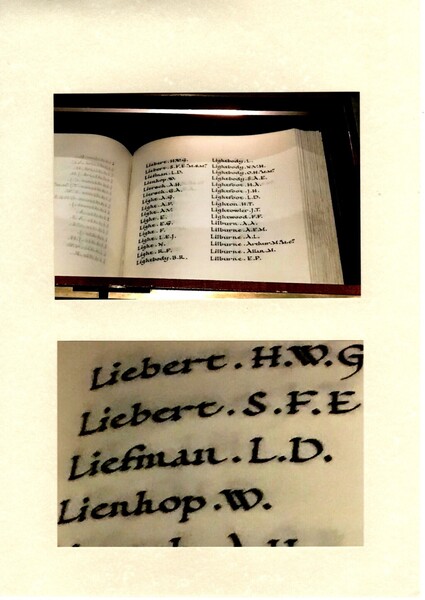 Liebert . H.W.G.
Liebert . S.F.E.
Liefman . L.D.
Lienhop . W.
Liersch . A.H.
Liersch . G.A.
Light . A.G.
Light . A.F.
Light . A.W.
Light . E.
Light . E.G.
Light . F.
Light . L.E.J.
Light . W.
Light . R.F.
Lightbody . B.R.
Lightbody . L.
Lightbody . W.N.H.
Lightbody
Lightbody . S.A.E.
Lightfoot . H.A.
Lightfoot . J.H.
Lightfoot . L.D.
Lighton . H.T.
Lightowler . J.T.
Lightwood . F.F.
Lilburn . A.A.
Lilburne . A.E.M.
Lilburne . A.L.
Lilburne . Arthur M.
Lilburne . Allan M.
Lilburne . E.P.
Liebert . H.W.G
Liebert . S.F.E
Liefman . L.D.
Lienhop . W.